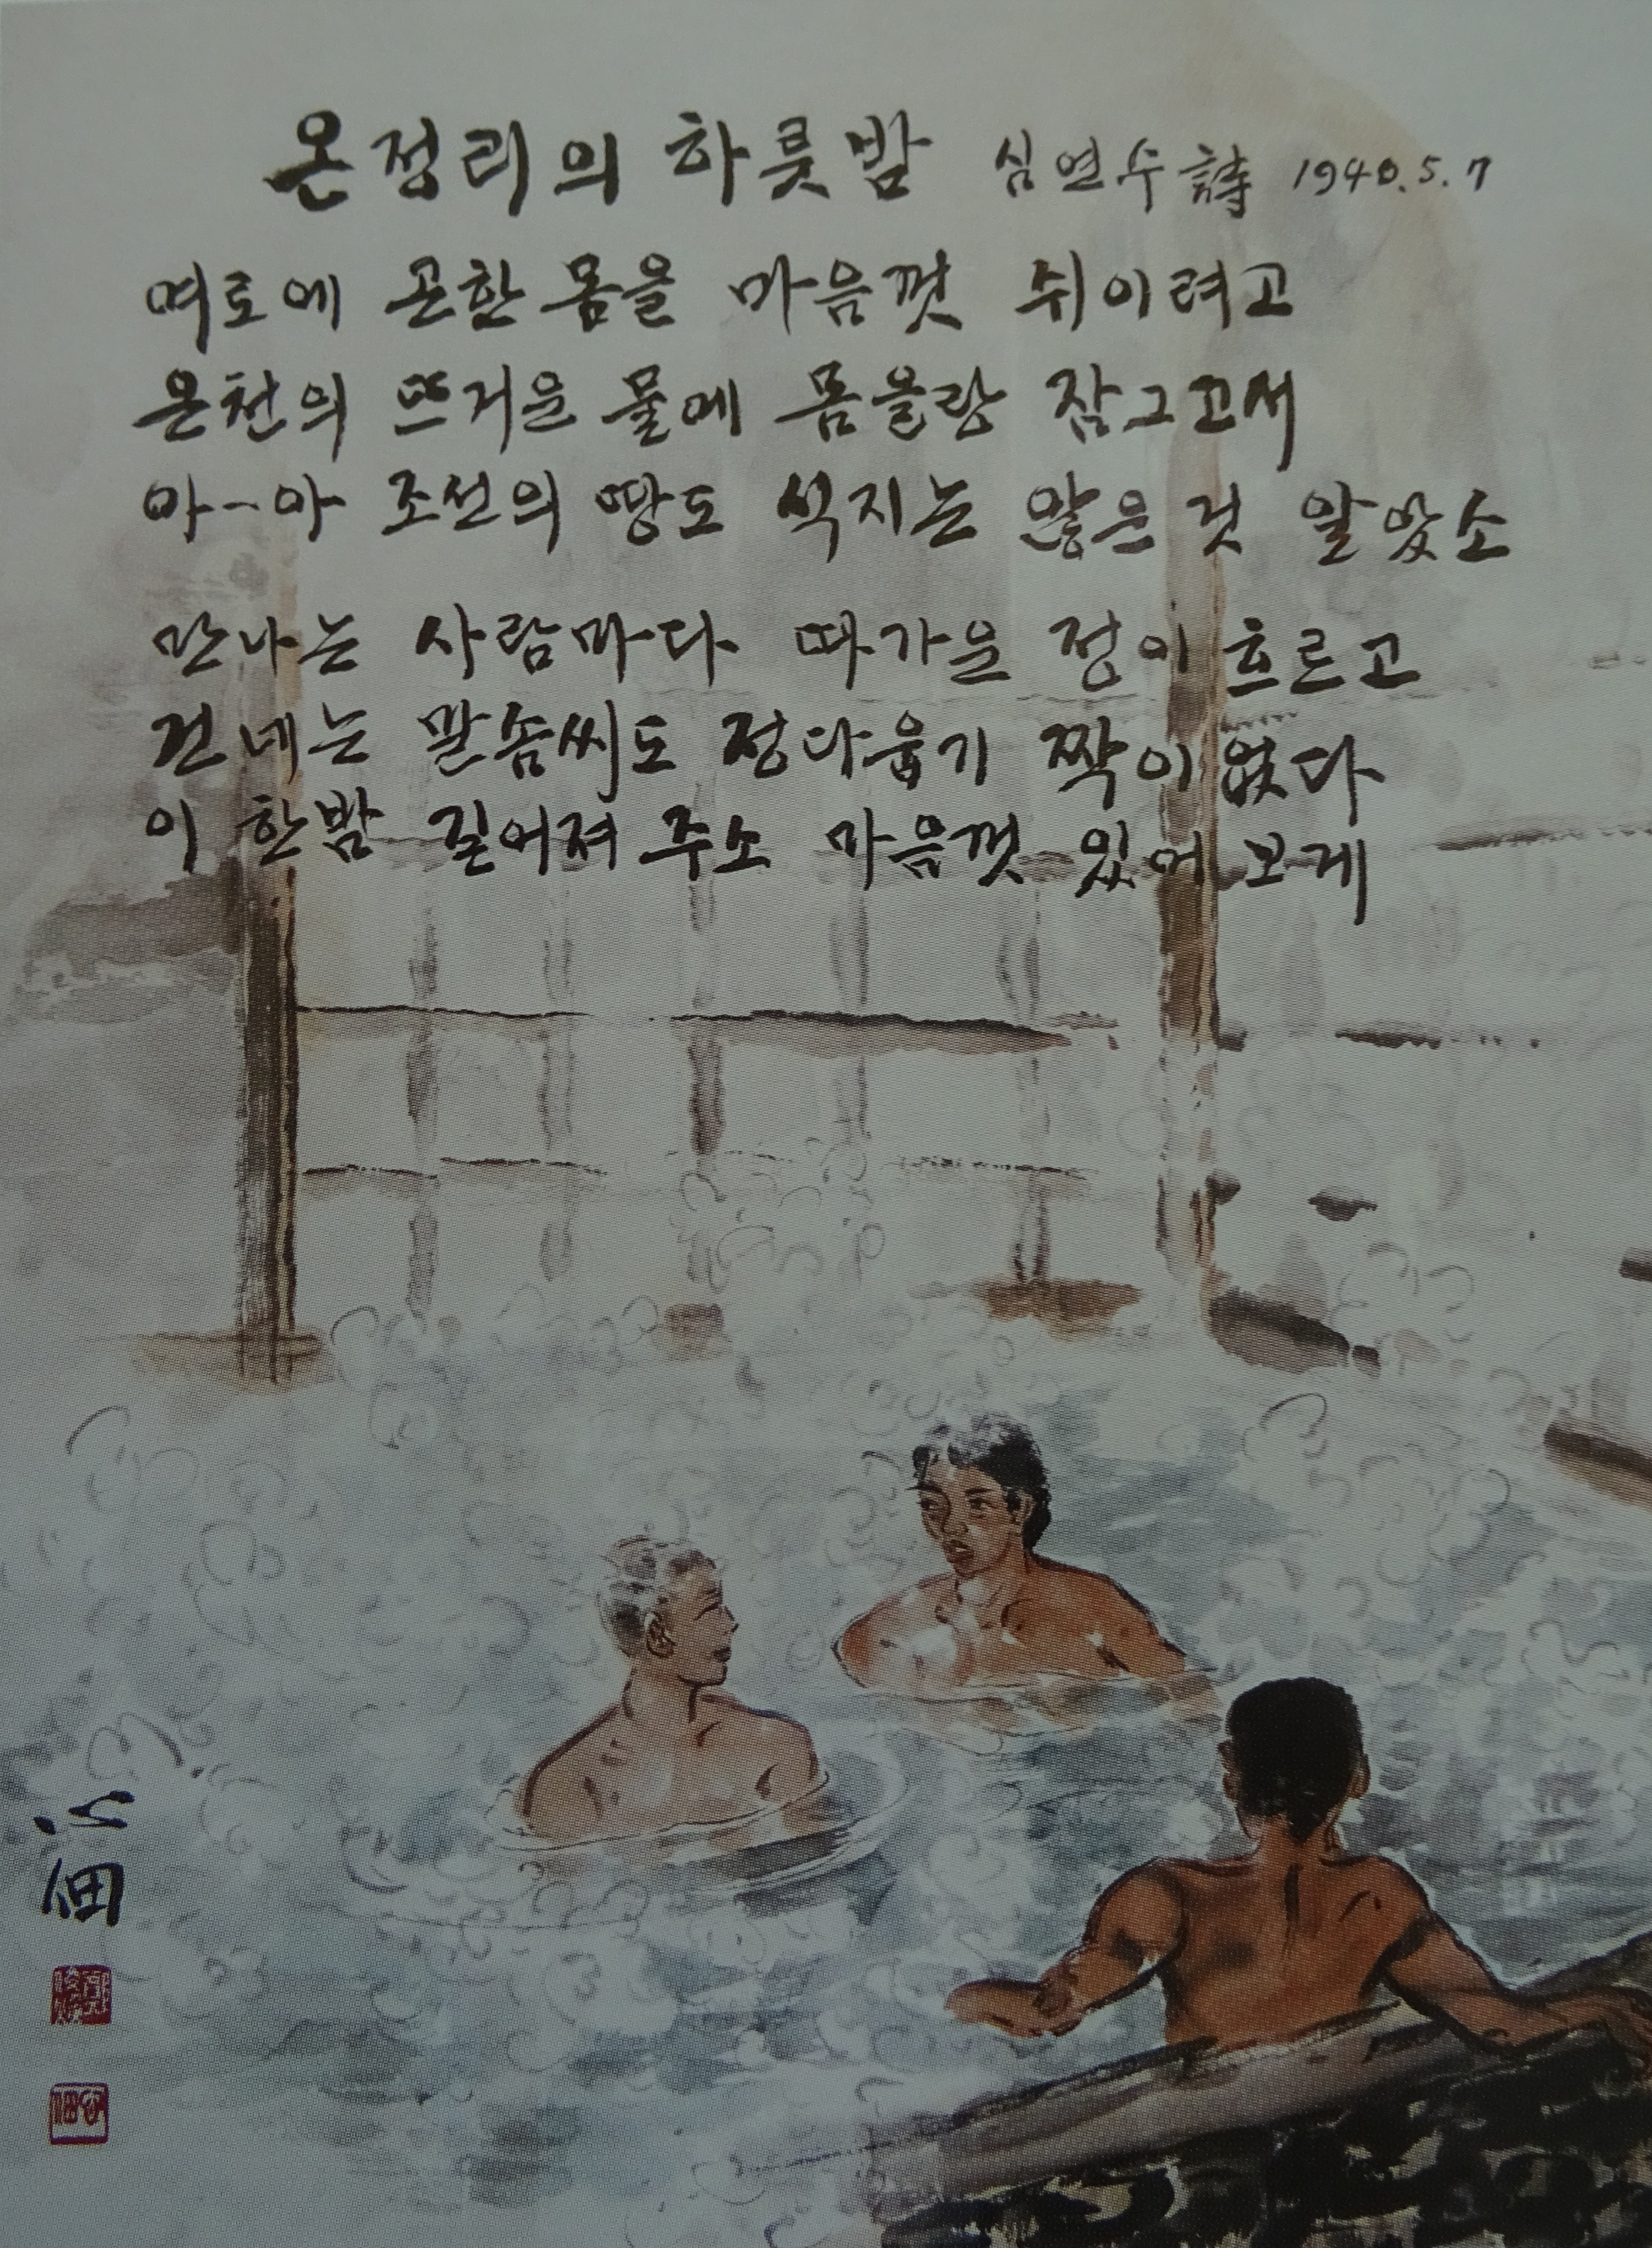 온정리의 하룻밤 심연수 詩 1940.5.7
여로에 곤한 몸을 마음껏 쉬이려고
온천의 뜨거운 물에 몸을랑 잠그고서
아-아 조선의 땅도 식지는 않은 것 알았소
만나는 사람마다 따가운 정이 흐르고
건네는 말솜씨도 정다웁기 짝이 없다
이 한밤 길어져 주소 마음껏 있어 보게
心佃